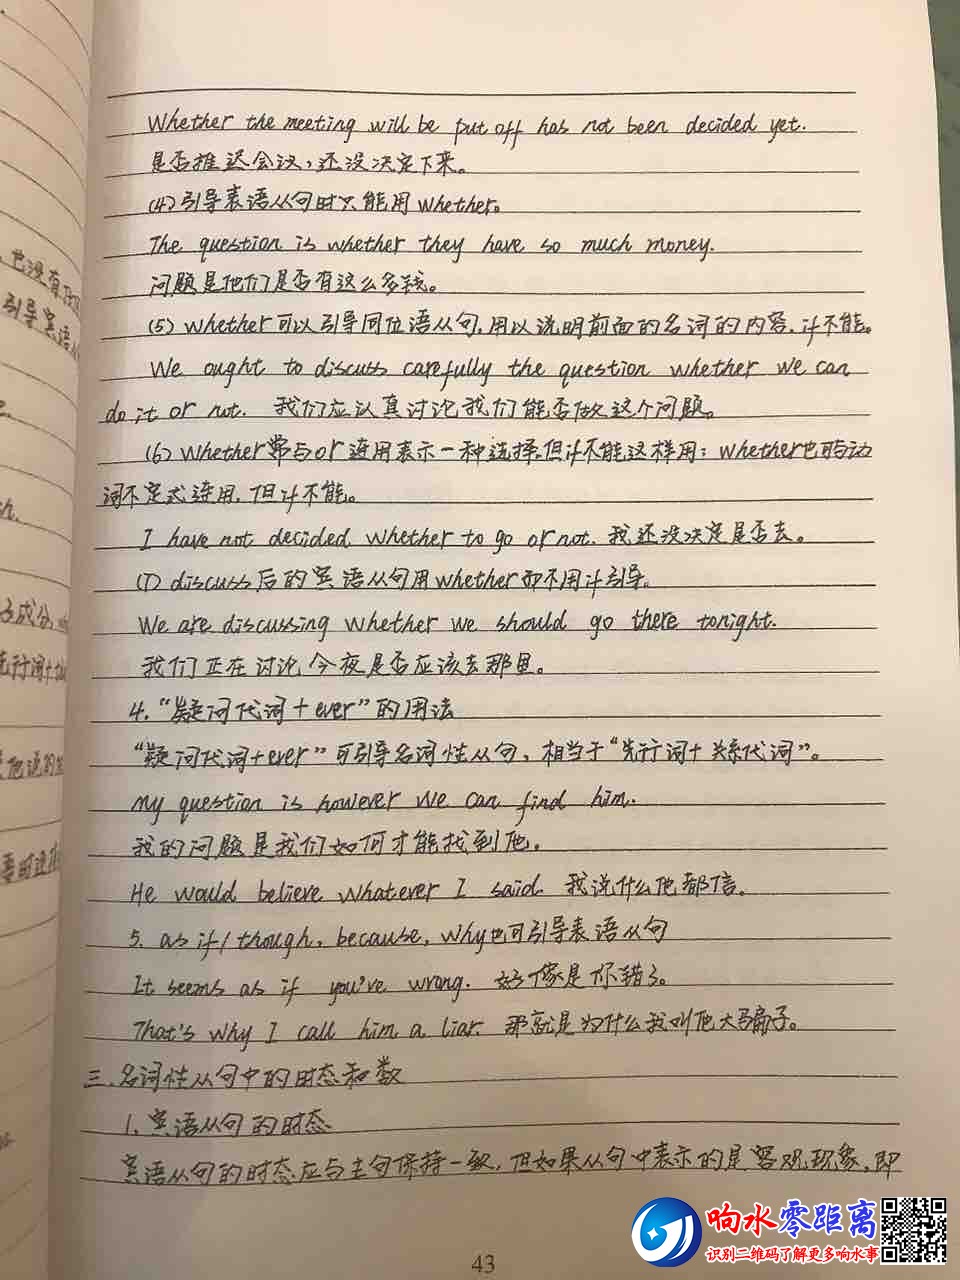 Whether the meeting will be put off has not been decided yet.
是否推迟会议，还没决定下来。
(4)引导表语从句时只能用whether。
The question is whether they have so much money.
问题是他们是否有这么多钱。
(5) whether可以引导同位语从句，用以说明前面的名词的内容，if不能。
We ought to discuss carefully the question whether we can
do it or not. 我们应认真讨论我们能否做这个问题。
(6) whether常与or连用表示一种选择，但if不能这样用；whether也可与动
词不定式连用，但if不能。
I have not decided whether to go or not. 我还没决定是否去。
(7) discuss后的宾语从句用whether而不用if引导。
We are discussing whether we should go there tonight.
我们正在讨论今夜是否应该去那里。
4.“疑问代词+ever”的用法
“疑问代词+ever”可引导名词性从句，相当于“先行词+关系代词”。
My question is however we can find him.
我的问题是我们如何才能找到他。
He would believe whatever I said. 我说什么他都信。
5. as if/though, because, why也可引导表语从句
It seems as if you're wrong. 好像是你错了。
That's why I call him a liar. 那就是为什么我叫他大骗子。
三.名词性从句中的时态和数
1.宾语从句的时态
宾语从句的时态应与主句保持一致，但如果从句中表示的是客观现象，即
43
也没有
引导宾语从
成分
先行词+
他说的
响水零距离
识别二维码了解更多响水事